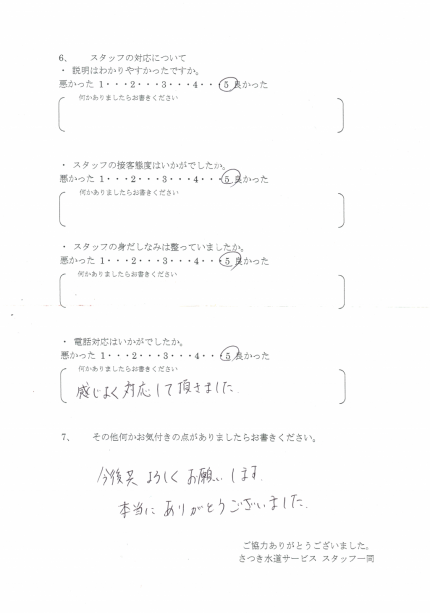 6、 スタッフの対応について
・ 説明はわかりやすかったですか。
悪かった 1・・・2・・・3・・・4・・・5 良かった
何かありましたらお書きください
・ スタッフの接客態度はいかがでしたか。
悪かった 1・・・2・・・3・・・4・・・5 良かった
何かありましたらお書きください
・ スタッフの身だしなみは整っていましたか。
悪かった 1・・・2・・・3・・・4・・・5 良かった
何かありましたらお書きください
・ 電話対応はいかがでしたか。
悪かった 1・・・2・・・3・・・4・・・5 良かった
何かありましたらお書きください
感じよく対応して頂きました
7、 その他何かお気付きの点がありましたらお書きください。
今後共 よろしく お願いします.
本当に ありがとうございました.
ご協力ありがとうございました。
さつき水道サービス スタッフ一同